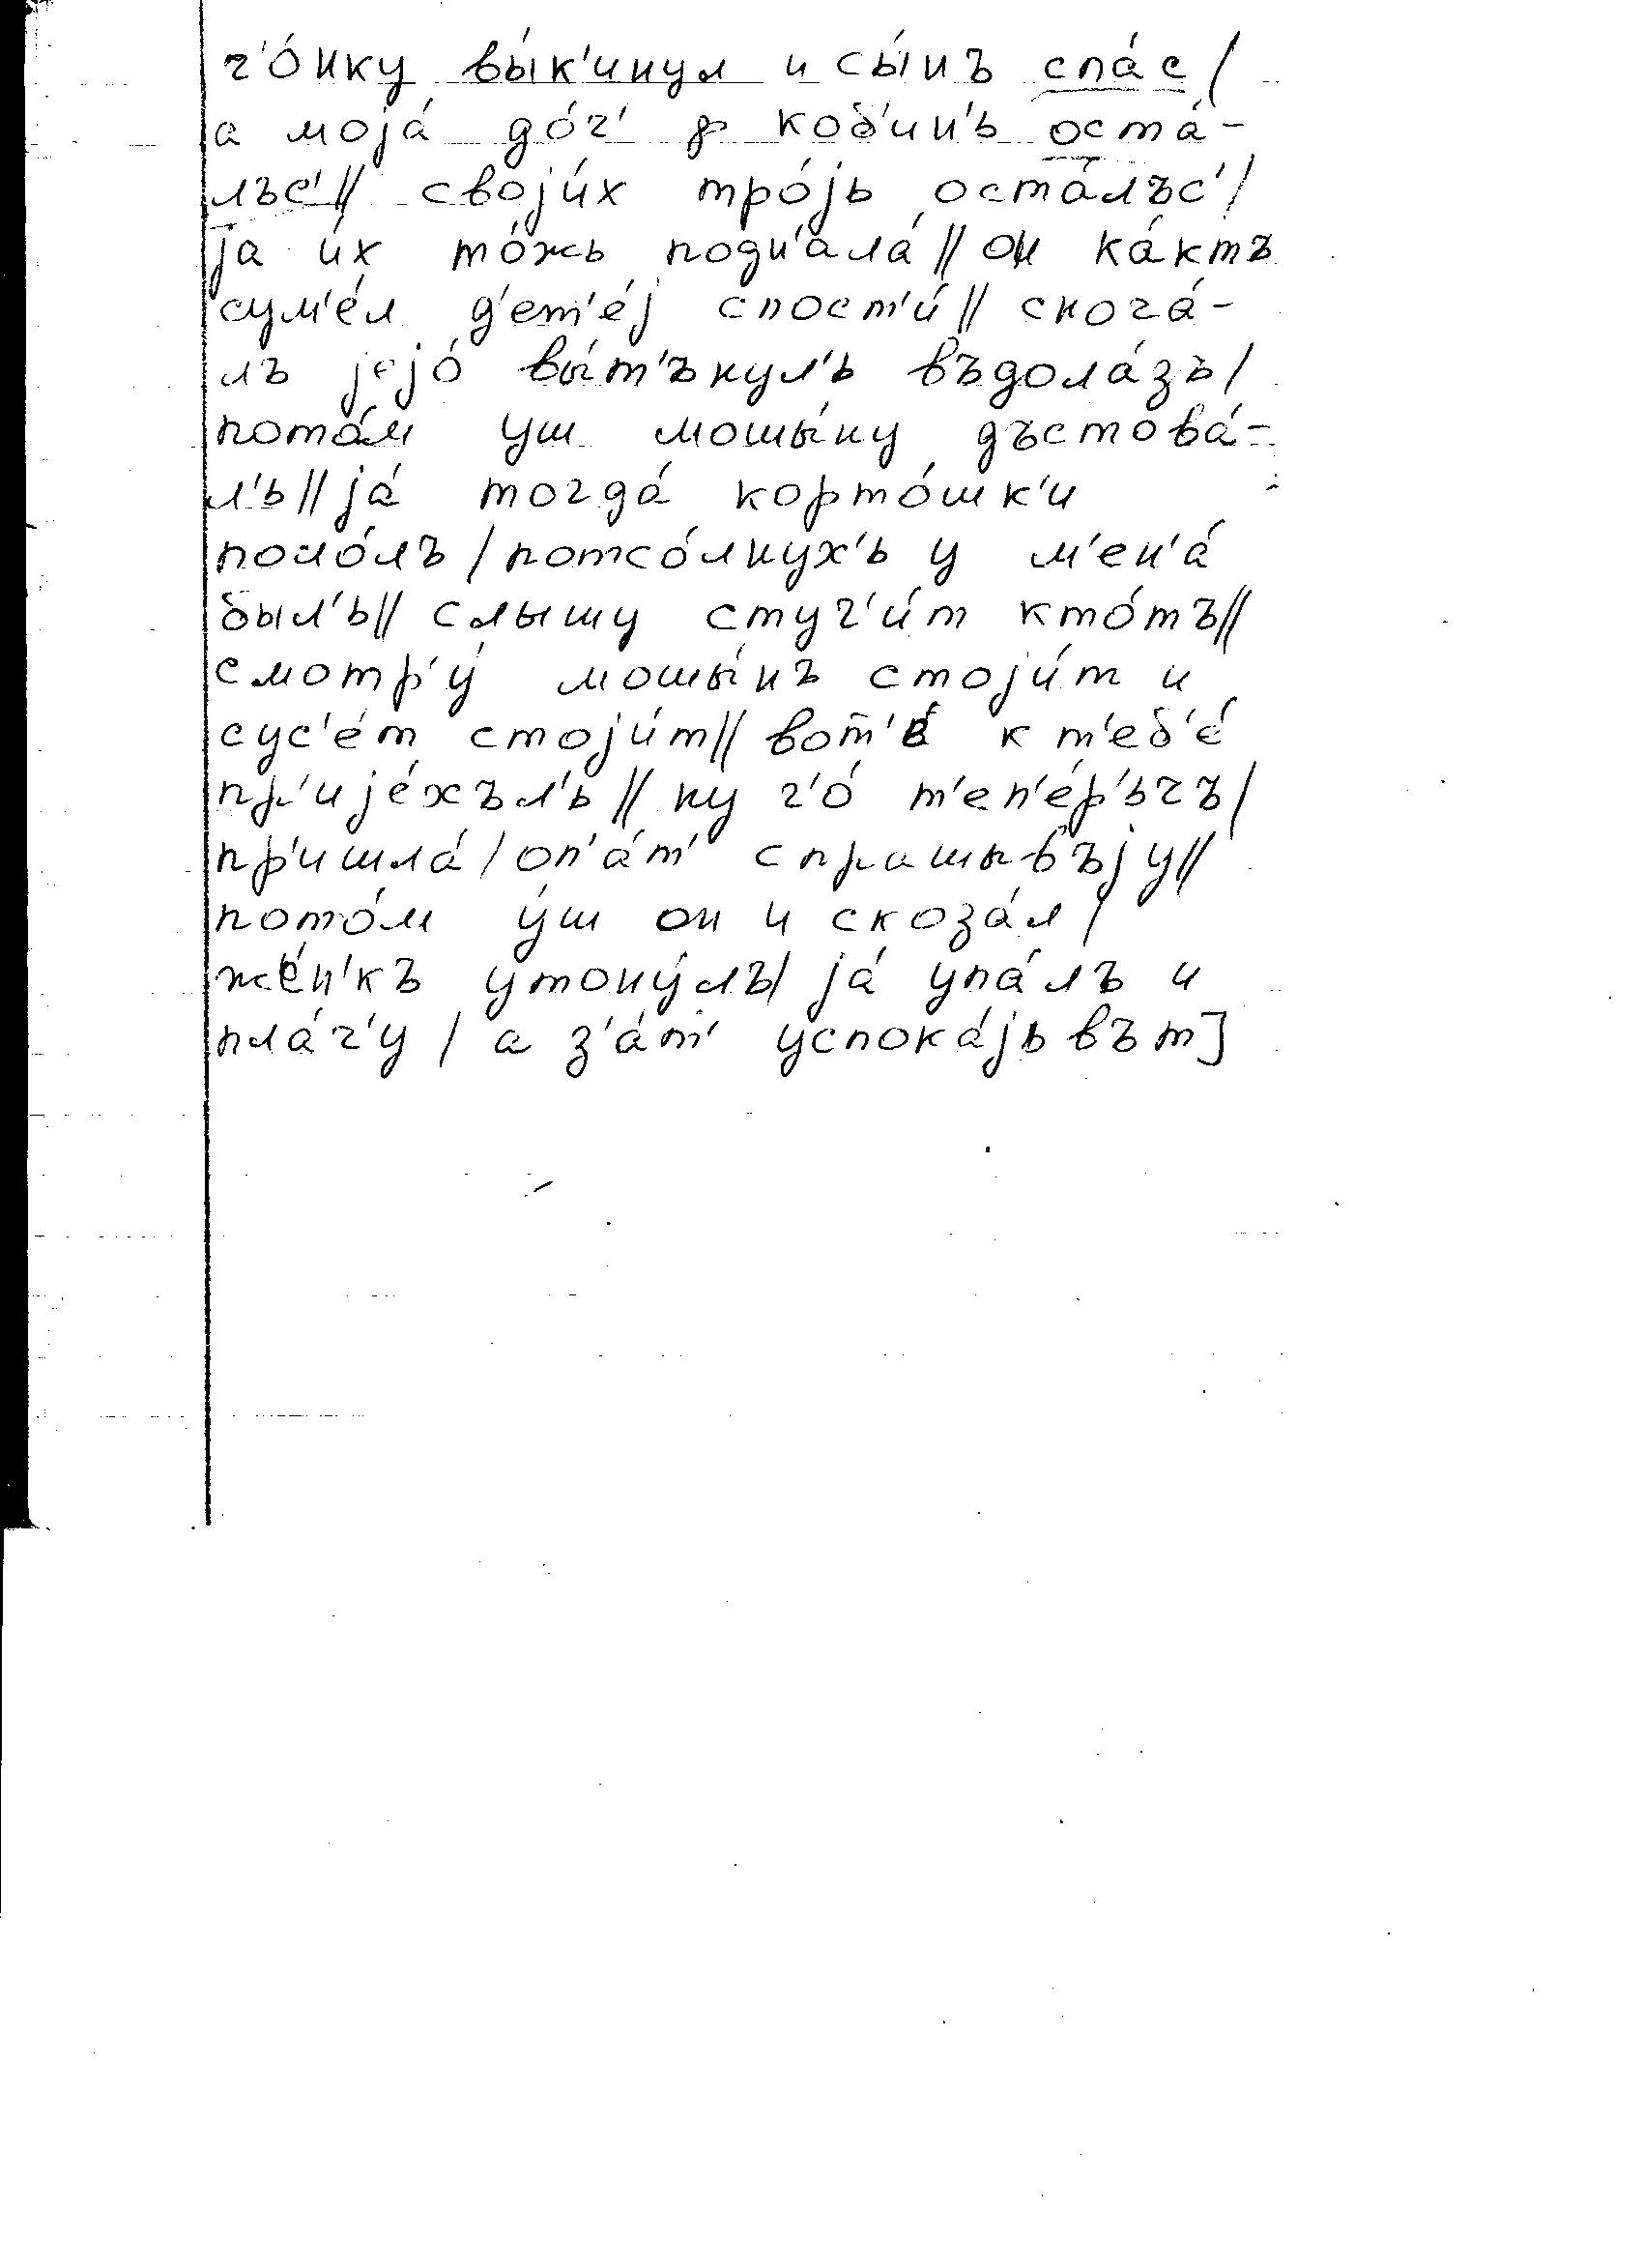 ч'о́нку вы́к'инул и сы́нъ спа́с /
а моjа́ до́ч' ф коб'ин'ь оста́-
лъс' // своjи́х тро́jь оста́лъс' /
jа и́х то́жь подн'ала́ // он ка́ктъ
сум'е́л д'ет'е́j спост'и́ // сноча́-
лъ jejо́ вы́т'ънул'ь въдола́зъ /
пото́м уш мошы́ну дъстова́-
л'ь // jа́ тогда́ корто́шк'и
поло́лъ / потсо́лнух'ь у м'ен'а́
был'ь // слышу стуч'и́т кто́тъ //
смотр'у́ мошы́нъ стоjи́т и
сус'е́т стоjи́т // вот к т'еб'е́
пр'иjе́хъл'ь // ну ч'о́ т'еп'е́р'ьчъ /
пр'ишла́ / оп'а́т' спрашывъjу //
пото́м у́ш он и скоза́л /
же́н'къ утону́лъ / jа́ упа́лъ и
пла́ч'у / а з'а́т' успока́jьвът]